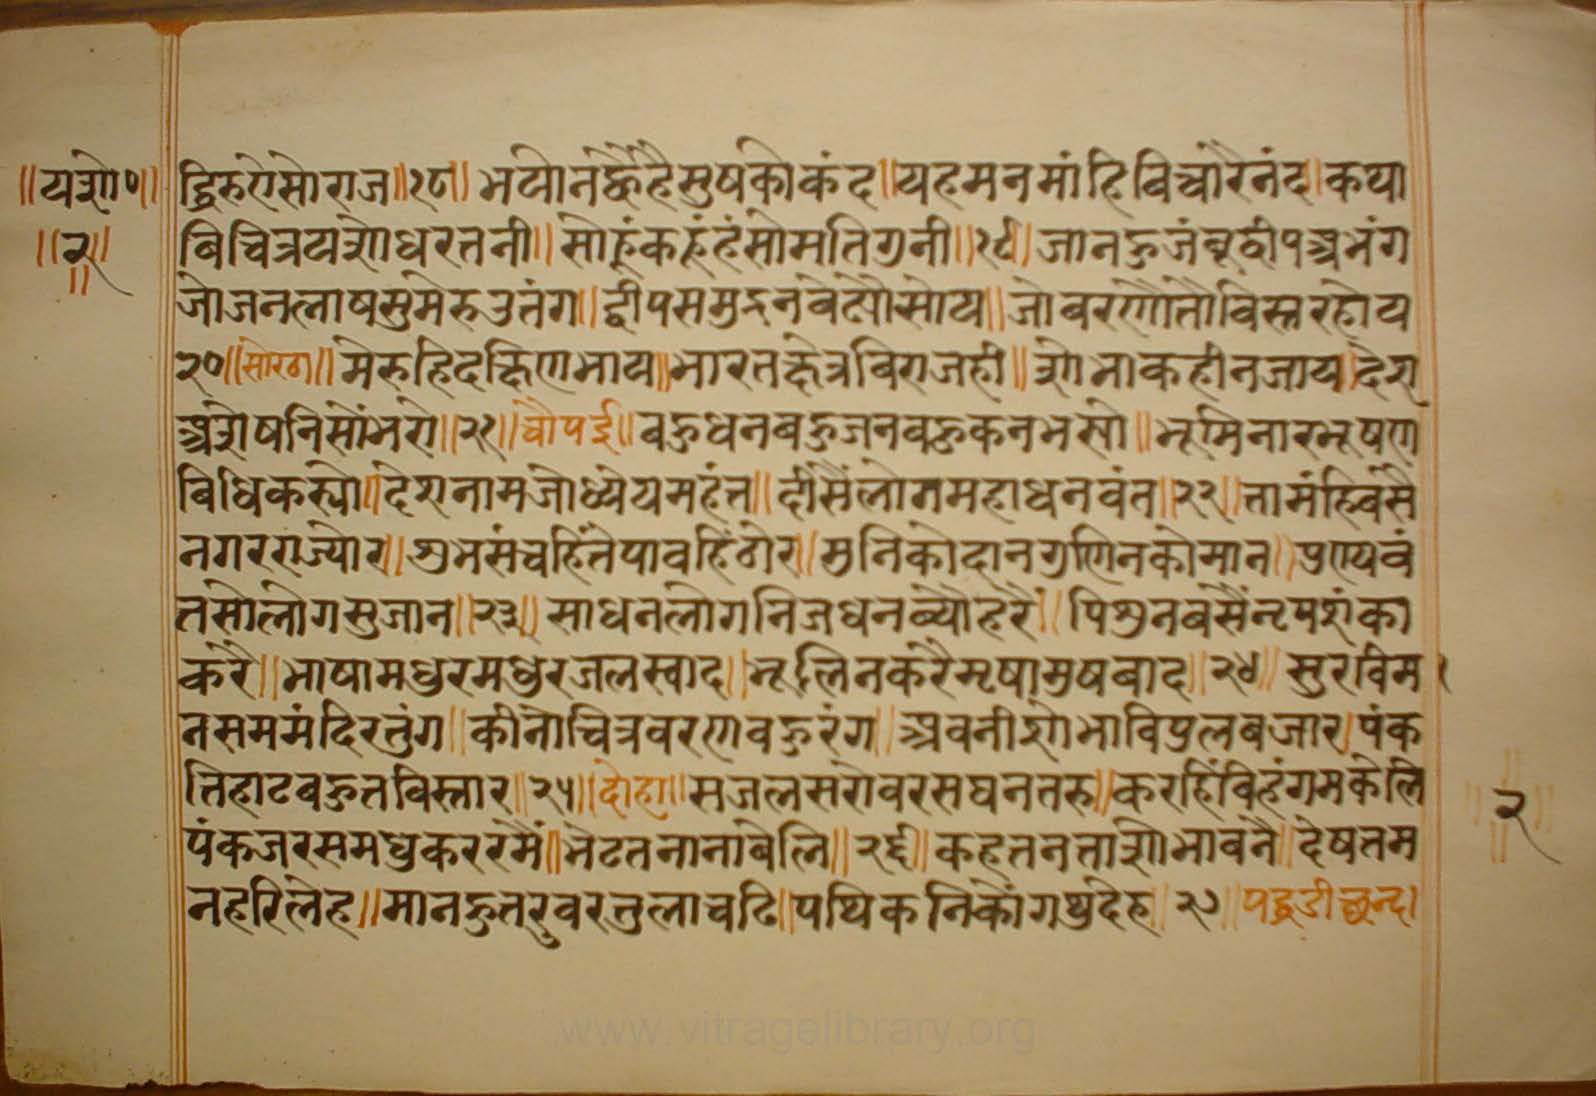 ॥यशो०॥
॥२॥
द्धिरुऐसोराज॥१८॥भयोनह्वैहैसुषकोकंद॥यहमनमांहिबिचारैनंद॥कथा
बिचित्रयशोधरतनी॥सोहूंकहूंहंसोमतिगुनी॥१९॥जानहुजंबूद्वीपअभंग
जोजनलाषसुमेरुउतंग॥द्वीपसमुद्रनबेढ्यौसोय॥जोबरणौतौविस्तरहोय
२०॥सोरठा॥मेरुहिदक्षिणभाय॥भारतक्षेत्रबिराजही॥शोभाकहीनजाय॥देश
अशेषनिसोंभरो॥२१॥चौपई॥बहुधनबहुजनबहुकनभस्यो॥भूमिनारभूषण
बिधिकस्यो॥देशनामजोध्येयमहंत॥दीसैंलोगमहाधनवंत॥२२॥तामंहि
नगरराज्योर॥शुभसंचहिंतेपावहिंठोर॥मुनिकोदानगुणिनकोमान॥पुण्यवं
तसोलोगसुजान॥२३॥साधनलोगनिजधनव्यौहरैं॥पिशुनबसैंनृपशंका
करैं॥भाषामधुरमधुरजलस्वाद॥भूलिनकरैमृषामुषबाद॥२४॥सुरविम
नसममंदिरतुंग॥कीनोचित्रवरणबहुरंग॥अवनीशोभाविपुलबजार॥पंक
तिहाटबहुतविस्तार॥२५॥दोहा॥सजलसरोवरसघनतरु॥करहिंविहंगमकेलि
पंकजरसमधुकररमैं॥भेटतनानाबेलि॥२६॥कहतनताशोभावनै॥देषतम
नहरिलेह॥मानहुतरुवरतुलाचढि॥पथिकनिकों॥२७॥पद्धडीछन्द॥
२
www.vitragelibrary.org